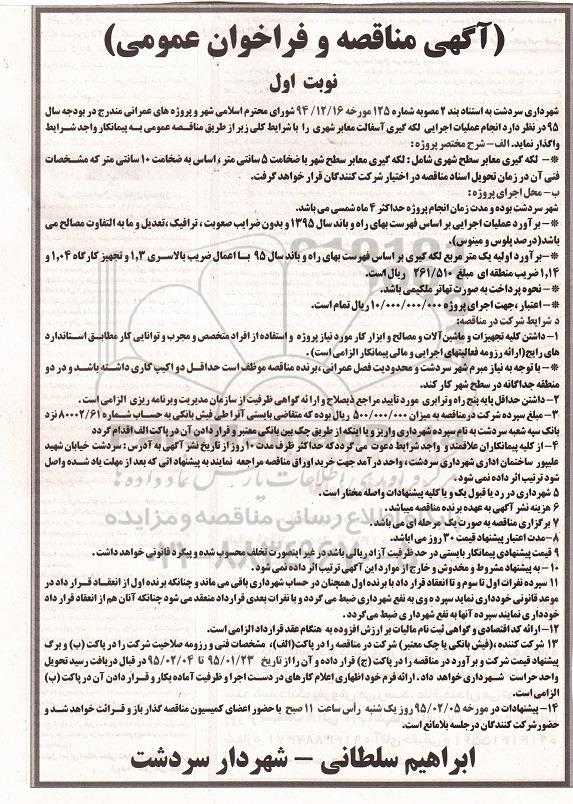 (آگهی مناقصه و فراخوان عمومی)
نوبت اول
شهرداری سردشت به استناد بند ۲ مصوبه شماره ۱۲۵ مورخه ۹۴/۱۲/۱۶ شورای محترم اسلامی شهر و پروژه های عمرانی مندرج در بودجه سال
۹۵ در نظر دارد انجام عملیات اجرایی لکه گیری آسفالت معابر شهری را با شرایط کلی زیر از طریق مناقصه عمومی به پیمانکار واجد شرایط
واگذار نماید. الف – شرح مختصر پروژه:
※– لکه گیری معابر سطح شهری شامل: لکه گیری معابر سطح شهر با ضخامت ۵ سانتی متر، اساس به ضخامت ۱۰ سانتی متر که مشخصات
فنی آن در زمان تحویل اسناد مناقصه در اختیار شرکت کنندگان قرار خواهد گرفت.
ب – محل اجرای پروژه:
شهر سردشت بوده و مدت زمان انجام پروژه حداکثر ۴ ماه شمسی می باشد.
※– برآورد عملیات اجرایی بر اساس فهرست بهای راه و باند سال ۱۳۹۵ و بدون ضرایب صعوبت، ترافیک، تعدیل و ما به التفاوت مصالح می
باشد(درصد پلوس و مینوس).
※– برآورد اولیه یک متر مربع لکه گیری بر اساس فهرست بهای راه و باند سال ۹۵ با اعمال ضریب بالاسری ۱,۳ و تجهیز کارگاه ۱,۰۴ و
۱,۱۴ ضریب منطقه ای مبلغ ۲۶۱/۵۱۰ ریال است.
※– نحوه پرداخت به صورت تهاتر ملکیمی باشد.
※– اعتبار، جهت اجرای پروژه ۱۰/۰۰۰/۰۰۰/۰۰۰ ریال تمام است.
د شرایط شرکت در مناقصه:
۱– داشتن کلیه تجهیزات و ماشین آلات و مصالح و ابزار کار مورد نیاز پروژه و استفاده از افراد متخصص و مجرب و توانایی کار مطابق استاندارد
های رایج(ارائه رزومه فعالیتهای اجرایی و مالی پیمانکار الزامی است).
※– با توجه به نیاز مبرم شهر سردشت و محدودیت فصل عمرانی، برنده مناقصه موظف است حداقل دو اکیپ کاری داشته باشد و در دو
منطقه جداگانه در سطح شهر کار کند.
۲– داشتن حداقل پایه پنج راه و ترابری مورد تایید مراجع ذیصلاح و ارائه گواهی ظرفیت از سازمان مدیریت وبرنامه ریزی الزامی است.
۳– مبلغ سپرده شرکت در مناقصه به میزان ۵۰۰/۰۰۰/۰۰۰ ریال بوده که متقاضی بایستی آنرا طی فیش بانکی به حساب شماره ۸۰۰۲/۶۱ نزد
بانک سپه شعبه سردشت به نام سپرده شهرداری واریز و یا اینکه از طریق چک بین بانکی معتبر و قرار دادن آن در پاکت الف اقدام گردد
۴– از کلیه پیمانکاران علاقمند و واجد شرایط دعوت می گردد که حداکثر ظرف مدت ۱۰ روز از تاریخ نشر آگهی به آدرس: سردشت خیابان شهید
علیپور ساختمان اداری شهرداری سردشت، واحد درآمد جهت خرید اوراق مناقصه مراجعه نمایند به پیشنهاداتی که بعد از مهلت یاد شده واصل
شود ترتیب اثر داده نمی شود.
۵ شهرداری در رد یا قبول یک و یا کلیه پیشنهادات واصله مختار است.
۶ هزینه نشر آگهی به عهده برنده مناقصه میباشد.
۷ برگزاری مناقصه به صورت یک مرحله ای می باشد.
۸– مدت اعتبار پیشنهاد قیمت ۳۰ روز می باشد.
۹ قیمت پیشنهادی پیمانکار بایستی در حد ظرفیت آزاد ریالی باشد در غیر اینصورت تخلف محسوب شده و پیگرد قانونی خواهد داشت.
۱۰ – به پیشنهاد مشروط و مخدوش و خارج از موارد این آگهی ترتیب اثر داده نمی شود.
۱۱ سپرده نفرات اول تا سوم و تا انعقاد قرار داد با برنده اول همچنان در حساب شهرداری باقی می ماند و چنانکه برنده اول از انعقاد قرار داد در
موعد قانونی خودداری نماید سپرده وی به نفع شهرداری ضبط می گردد و با نفرات بعدی قرارداد منعقد می شود چنانکه آنان هم از انعقاد قرار داد
خودداری نمایند سپرده آنها به نفع شهرداری ضبط می گردد.
۱۲– ارائه کد اقتصادی و گواهی ثبت نام مالیات بر ارزش افزوده به هنگام عقد قرارداد الزامی است.
۱۳ شرکت کننده، (فیش بانکی یا چک معتبر) شرکت در مناقصه را در پاکت(الف)، مشخصات فنی و رزومه صلاحیت شرکت را در پاکت (ب) و برگ
پیشنهاد قیمت شرکت و برآورد در مناقصه را در پاکت (ج) قرار داده و آن را از تاریخ ۹۵/۰۱/۲۳ تا ۹۵/۰۲/۰۴ در قبال دریافت رسید تحویل
واحد حراست شهرداری خواهد داد. ارائه فرم خود اظهاری اعلام کارهای در دست اجرا و ظرفیت آماده بکار و قرار دادن آن در پاکت (ب)
الزامی است.
۱۴– پیشنهادات در مورخه ۹۵/۰۲/۰۵ روز یک شنبه رأس ساعت ۱۱ صبح با حضور اعضای کمیسیون مناقصه گذار باز و قرائت خواهد شد و
حضور شرکت کنندگان در جلسه بلامانع است.
ابراهیم سلطانی – شهردار سردشت